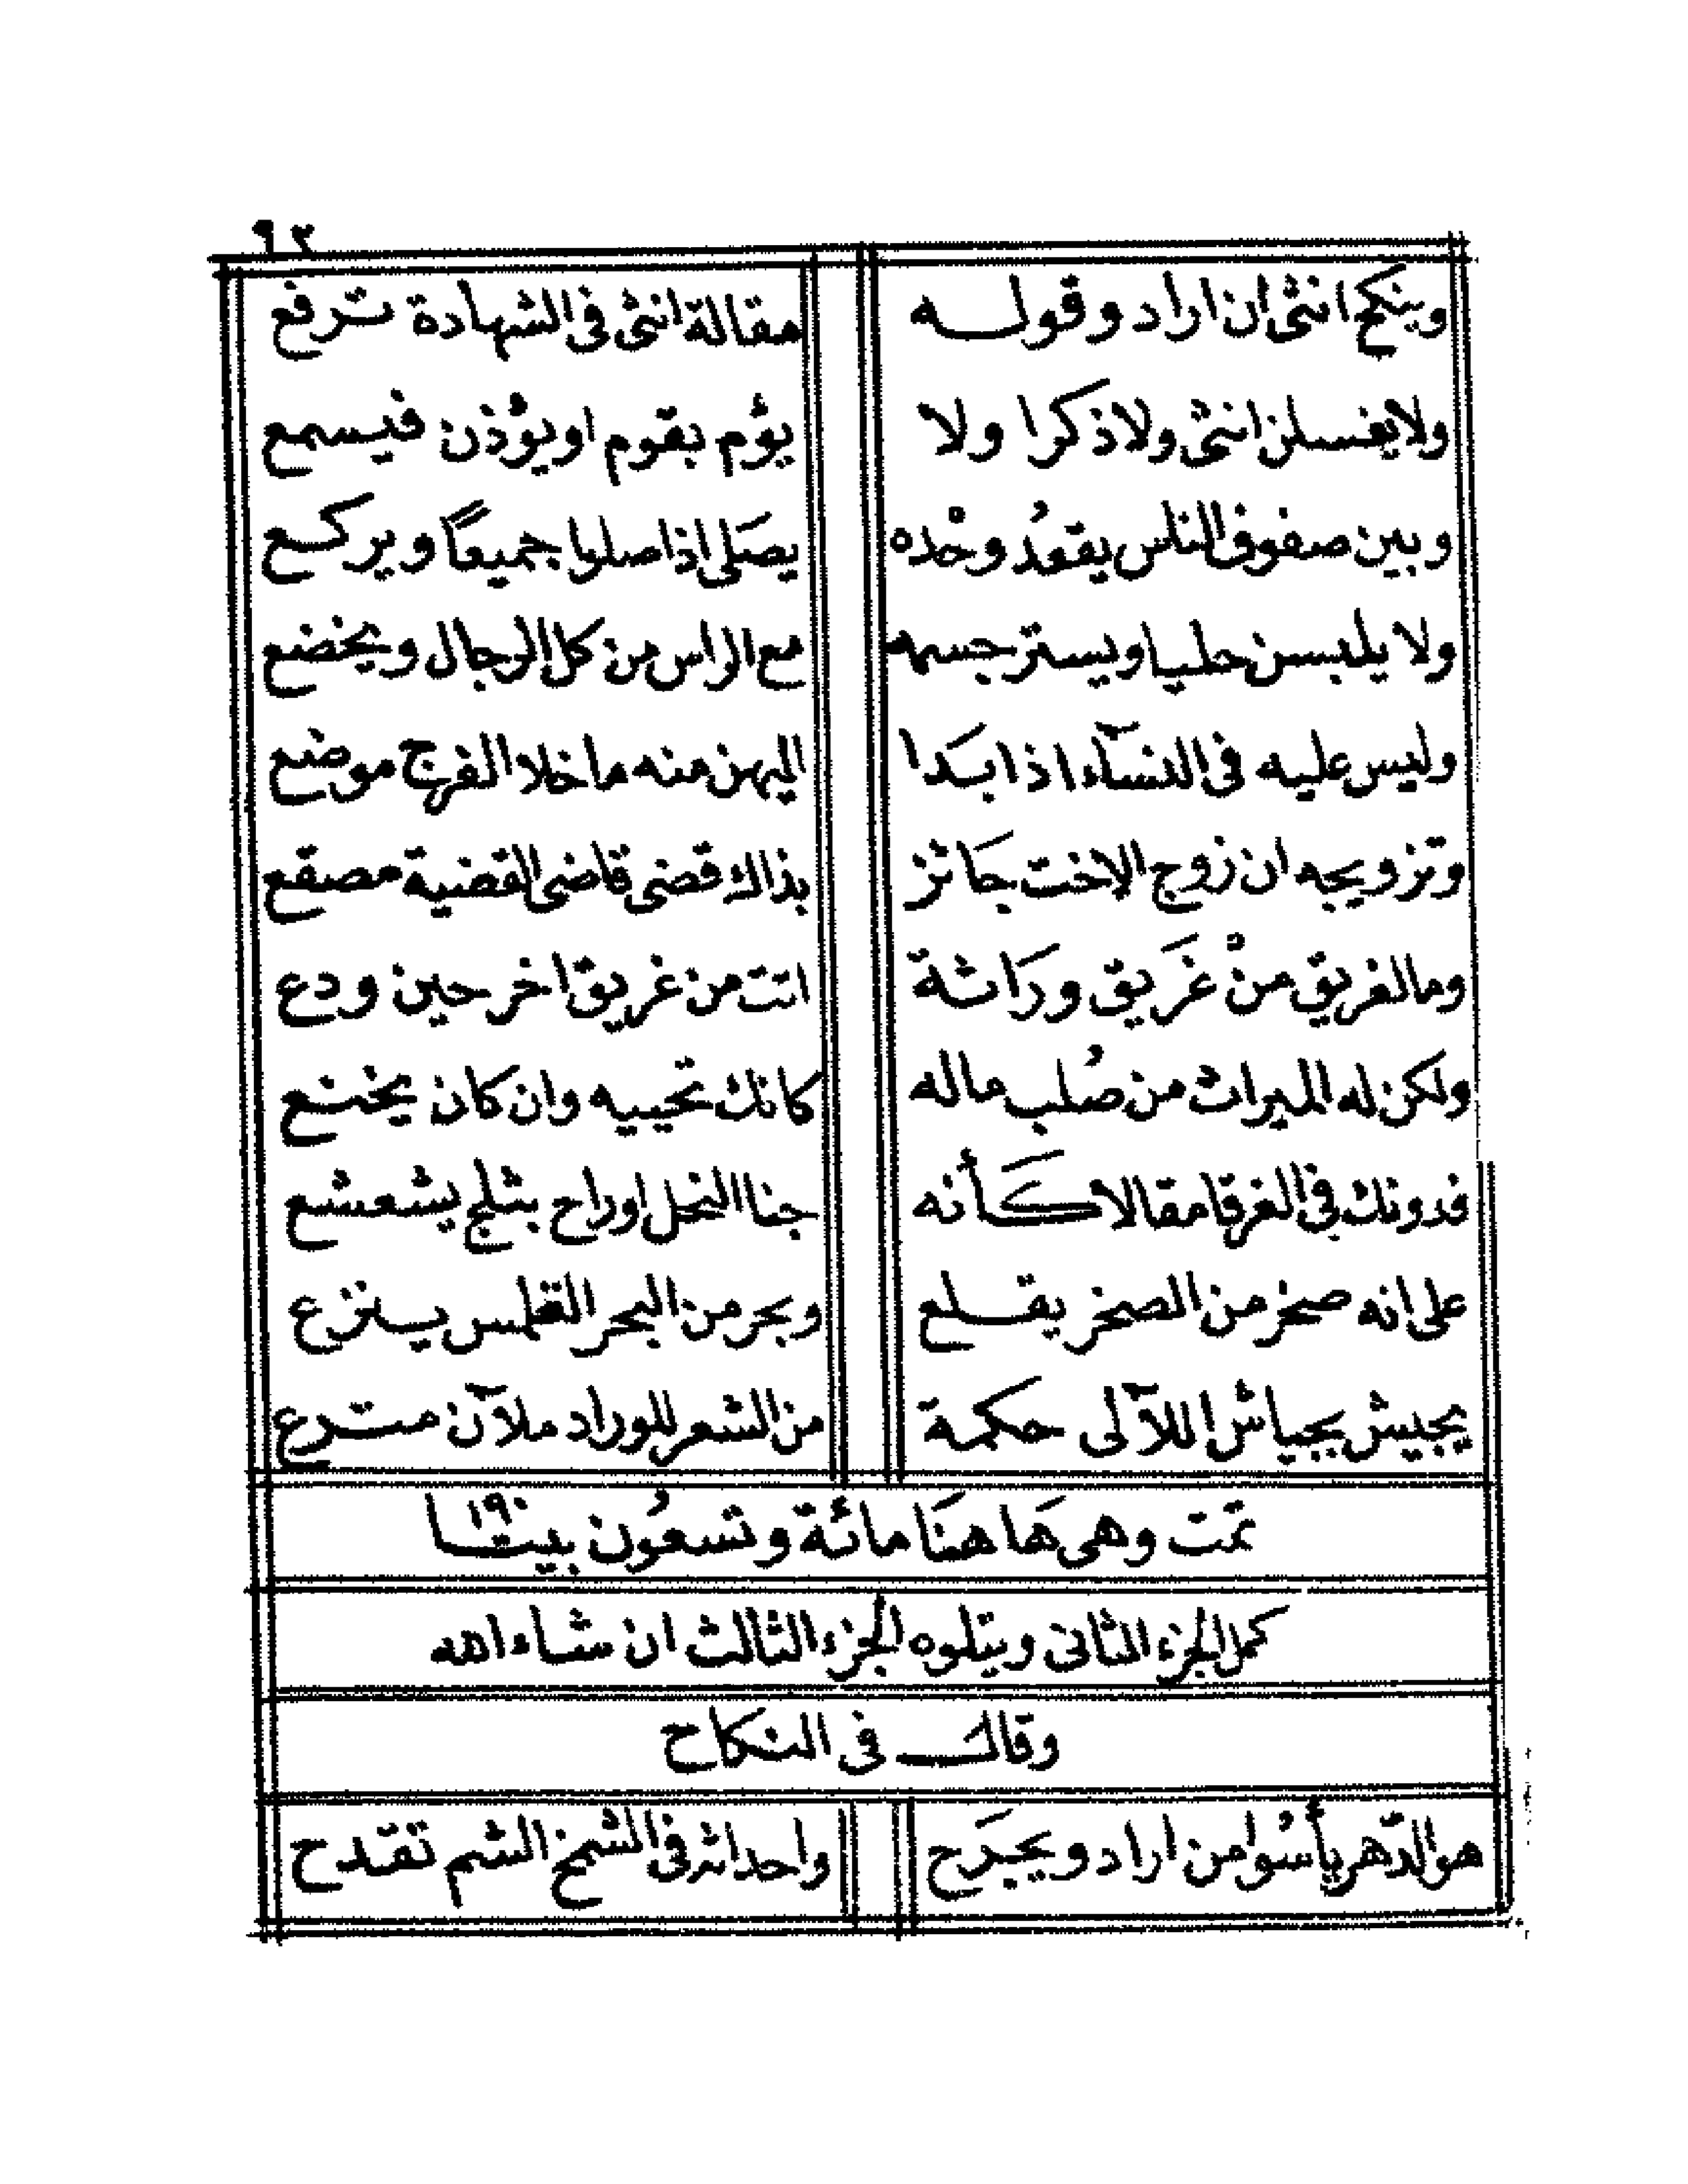 ٩٣
وينكح انثى ان اراد وقوله مقالة انثى فى الشهادة ترفع
ولا يغسلن انثى ولا ذكرا ولا يؤم بقوم او يؤذن فيسمع
وبين صفوف الناس يقعُد وحْده يصَلى اذا صلوا جميعاً ويركع
ولا يلبسن حليا ويستر جسمه مع الراس من كل الرجال ويخضع
وليس عليه فى النسآء اذا بَدا اليهن منه ما خلا الفرج موضع
وتزويجه ان زوج الاخت جَائز بذالك قضى قاضى القضية مصقع
وما لغريق منْ غَريق ورَاثة اتت من غريق اخر حين ودع
ولكن له الميراث من صُلب ماله كانك تحييه وان كان يخنع
فدونك فى الغرقا مقالا كَأنه جنا النحل او راح بثلج يشعشع
على انه صخر من الصخر يقلع وبحر من البحر القلمس ينزع
يجيش بجياش اللآلى حكمة من الشعر للوراد ملآن مترع
تمت وهى هَا هنَا مائة وتسعُون بيتا ١٩٠
كمل الجزء الثانى ويتلوه الجزء الثالث ان شاء الله
وقال فى النكاح
هو الدّهر يأسُوا من اراد ويجرَح واحداثه فى الشمخ الشم تقدح